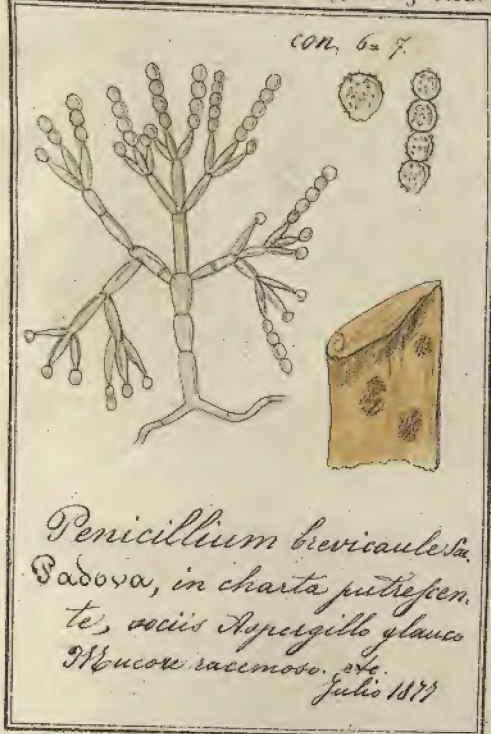 con. 6= 7.
Penicillium brevicaule Sac.
Padova, in charta putrescen-
te, sociis Aspergillo glauco
Mucore racemoso. etc.
Julio 1877